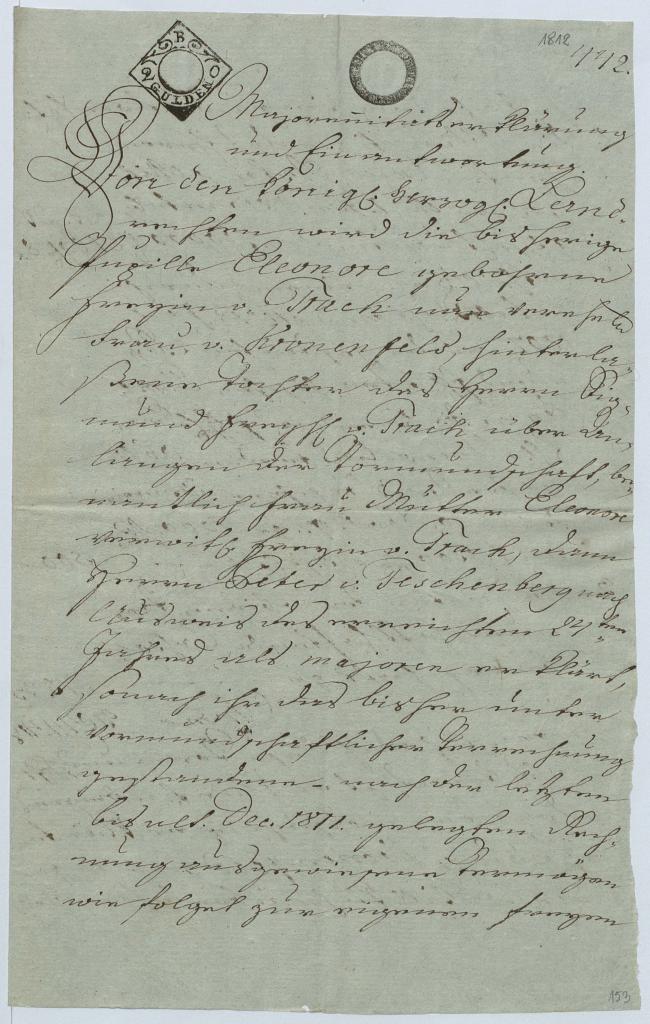 B
2 GULDEN
1812
112.
Majorennitätserklärung
und Einantwortung.
Von den königl. herzogl. Land-
rechten wird die bisherige
Pupille Eleonore gebohrene
Freyin v. Trach nun verehelte
Frau v. Kronenfels, hinterla-
ßene Tochter des Herrn Sig-
mund Freyh. v. Trach über An-
langen der Vormundschaft, be-
nanntlich Frau Mutter Eleonore
verwit. Freyin v. Trach, dann
Herrn Peter v. Teschenberg nach
Ausweis des erreichten 24ten
Jahres als majoren erklärt,
sonach ihr das bisher unter
vormundschaftlicher Verrechnung
gestandene - nach der letzten
bis ult. Dec. 1811. gelegten Rech-
nung ausgewiesene Vermögen
wie folget zur eigenen freyen
153